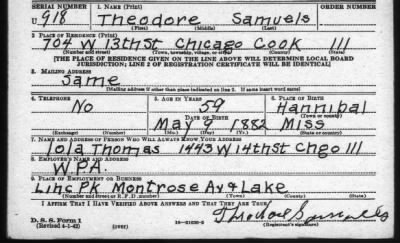 SERIAL NUMBER 1. NAME (Print) ORDER NUMBER
U 918 Theodore Samuels
(First) (Middle) (Last)
2. PLACE OF RESIDENCE (Print)
704 W 13th St Chicago Cook Ill
(Number and street) (Town, township, village, or city) (County) (State)
[THE PLACE OF RESIDENCE GIVEN ON THE LINE ABOVE WILL DETERMINE LOCAL BOARD
JURISDICTION; LINE 2 OF REGISTRATION CERTIFICATE WILL BE IDENTICAL]
3. MAILING ADDRESS
Same
(Mailing address if other than place indicated on line 2. If same insert word same)
4. TELEPHONE 5. AGE IN YEARS 6. PLACE OF BIRTH
No 59 Hannibal
DATE OF BIRTH (Town or county)
May 9 1882 Miss
(Exchange) (Number) (Mo.) (Day) (Yr.) (State or country)
7. NAME AND ADDRESS OF PERSON WHO WILL ALWAYS KNOW YOUR ADDRESS
Iola Thomas 1443 W 14th St Chgo Ill
8. EMPLOYER'S NAME AND ADDRESS
W.P.A.
9. PLACE OF EMPLOYMENT OR BUSINESS
Linc Pk Montrose Av & Lake
(Number and street or R. F. D. number) (Town) (County) (State)
I AFFIRM THAT I HAVE VERIFIED ABOVE ANSWERS AND THAT THEY ARE TRUE.
D. S. S. Form 1
(Revised 4-1-42) (over) (Registrant's signature)